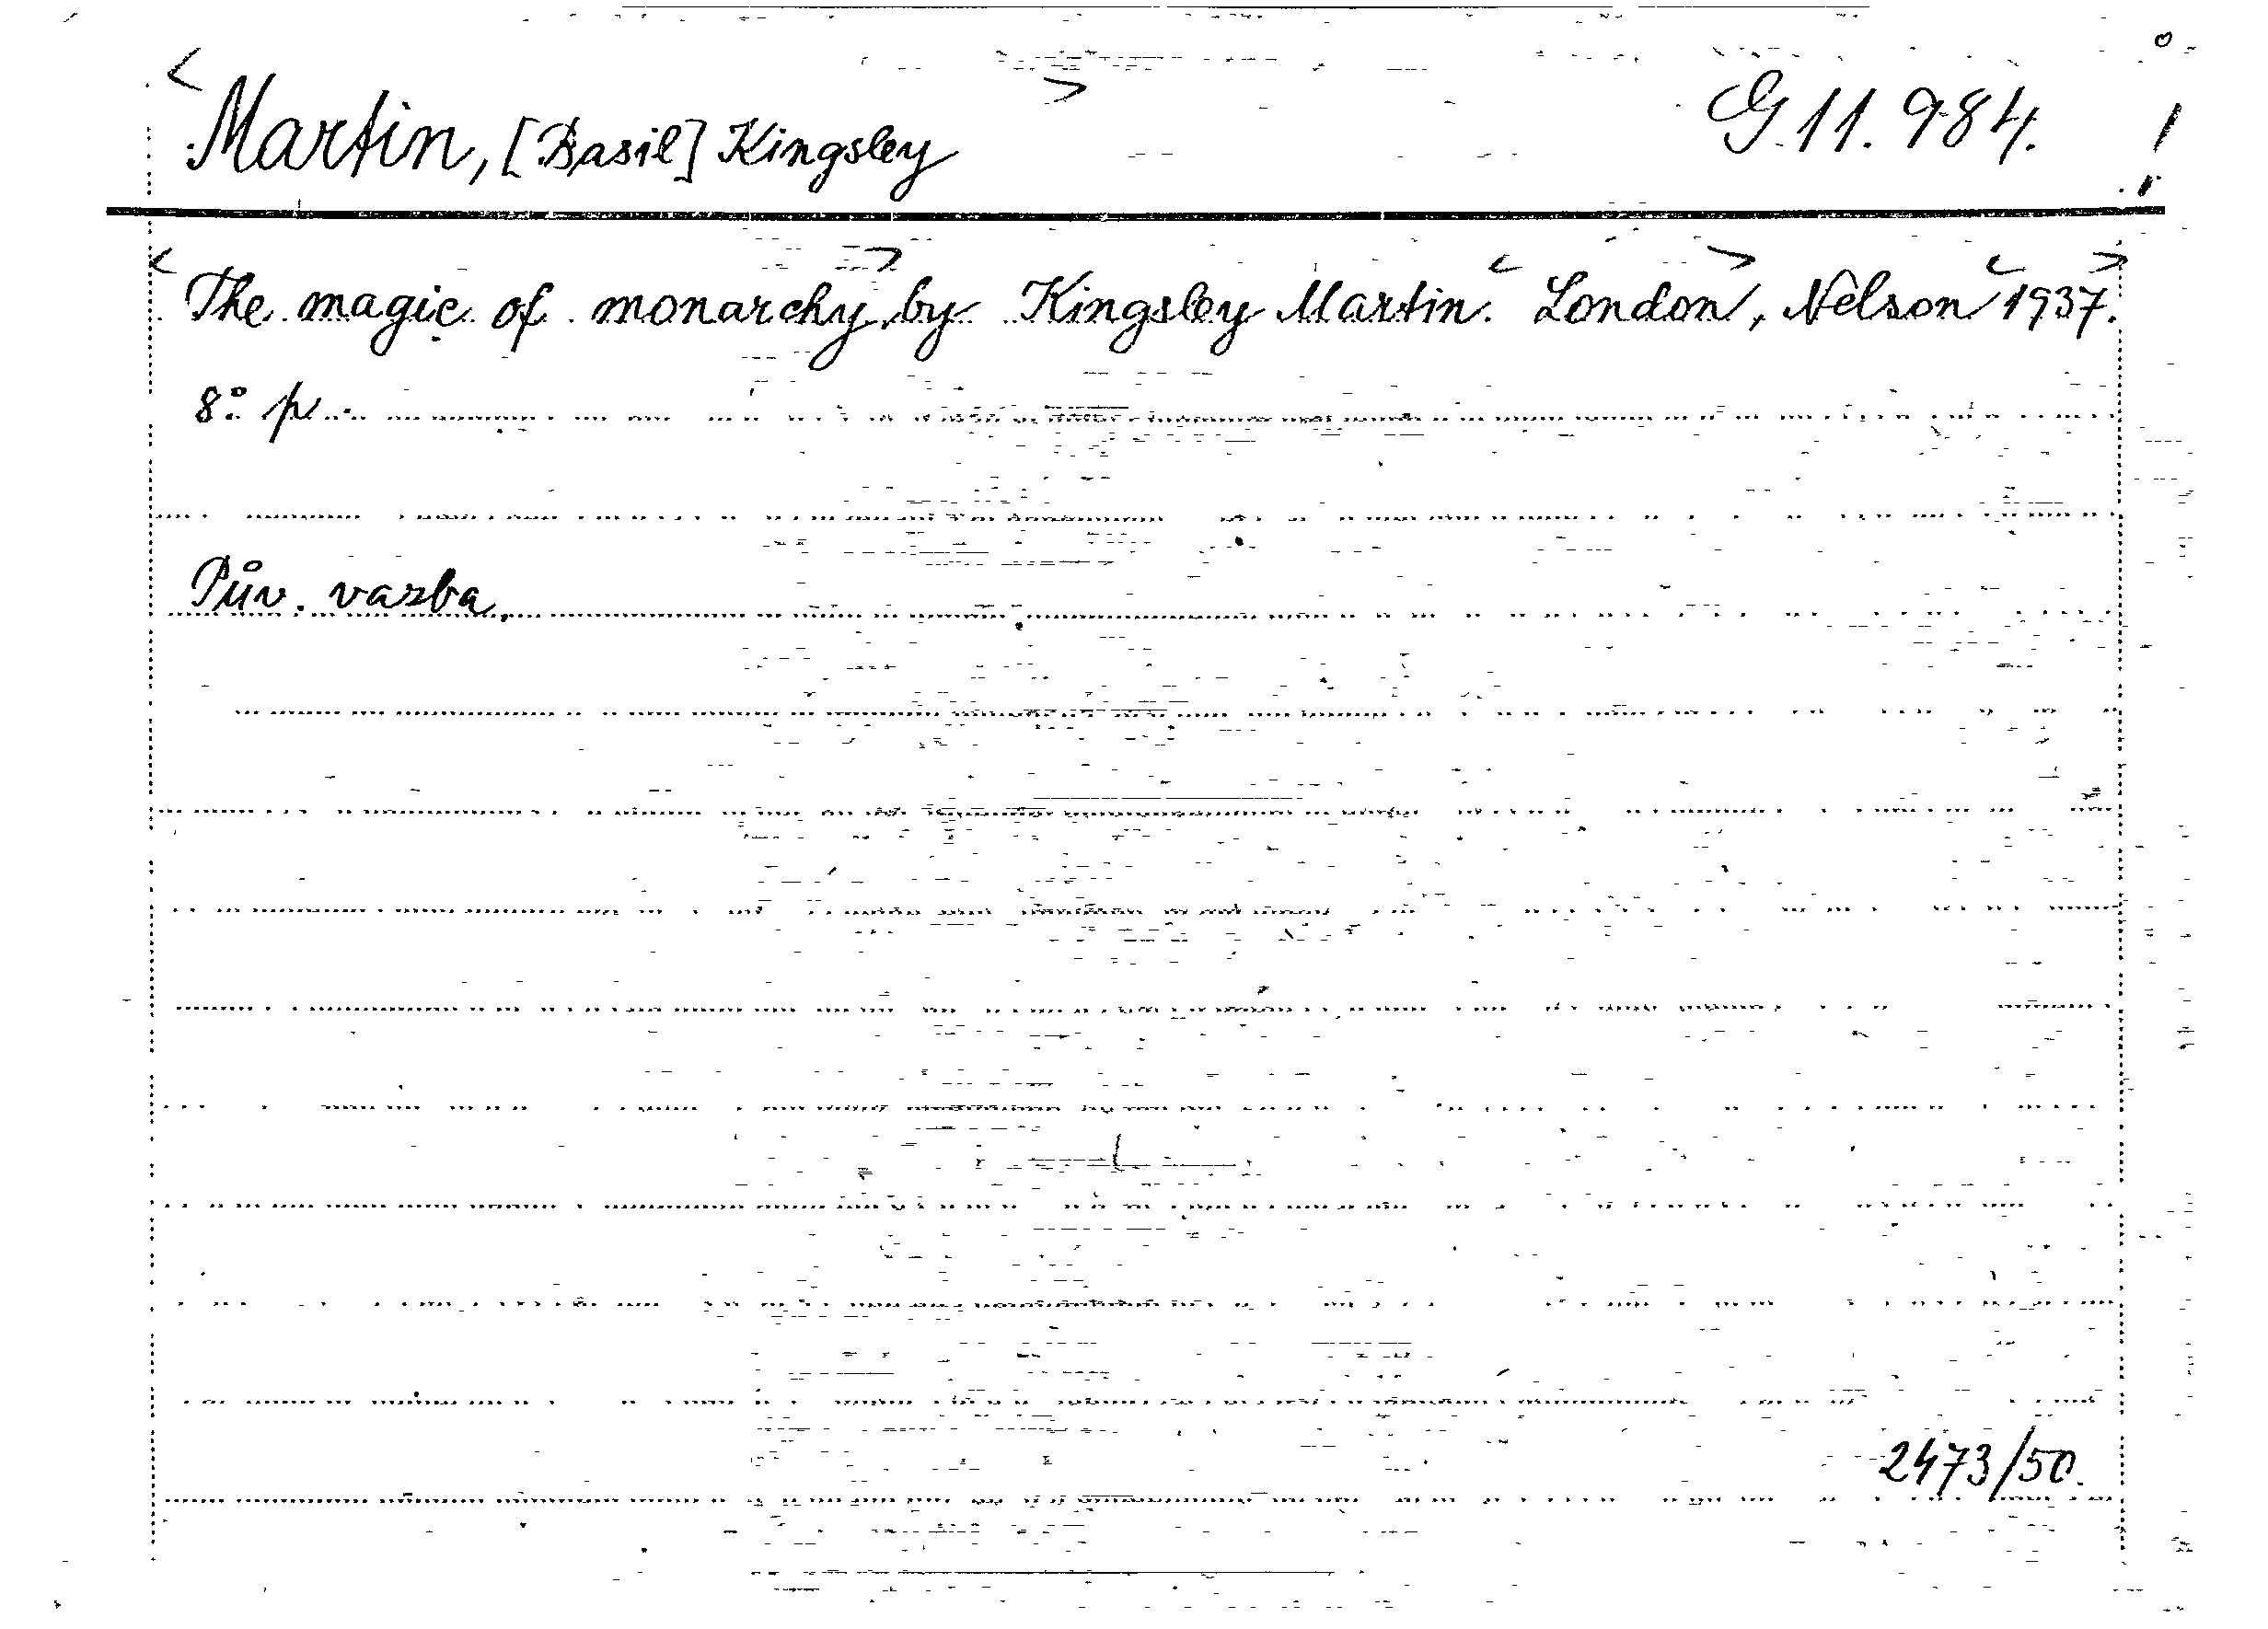 <Martin, [Basil] Kingsley> G 11.984.
<The magic of monarchy,> by Kingsley Martin. <London>, Nelson <1937>.
8° p
Pův. vazba.
2473/50.